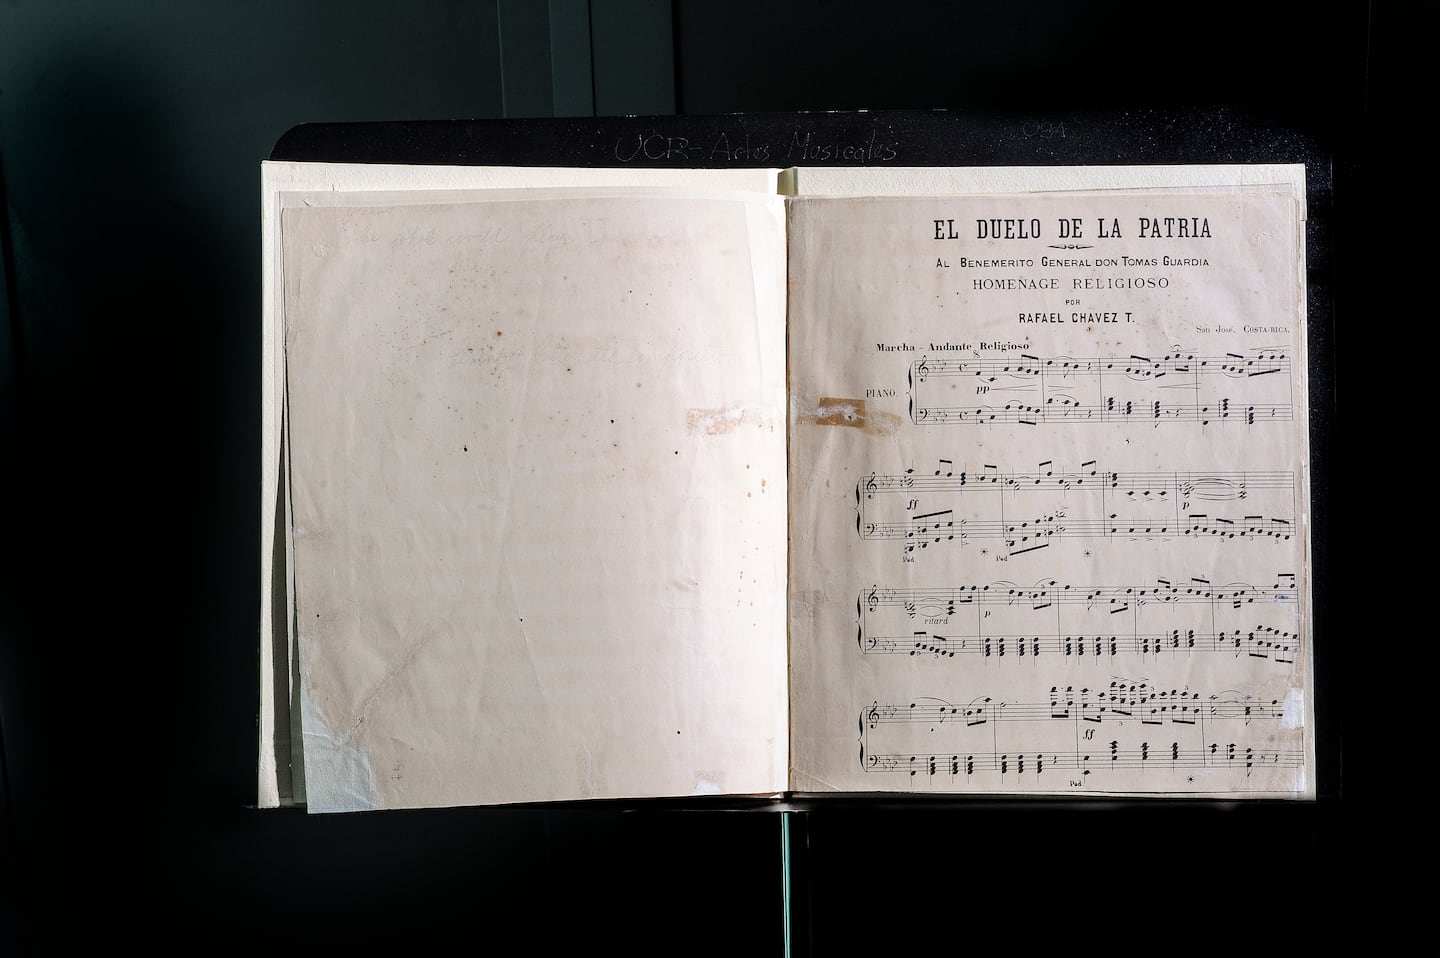 UCR-Artes Musicales
EL DUELO DE LA PATRIA
AL BENEMERITO GENERAL DON TOMAS GUARDIA
HOMENAGE RELIGIOSO
POR
RAFAEL CHAVEZ T.
San José, COSTA-RICA.
Marcha - Andante Religioso
PIANO.
pp
ff
p
3 3
Ped
Ped
ritard
p
3 3
3 3
ff
Ped